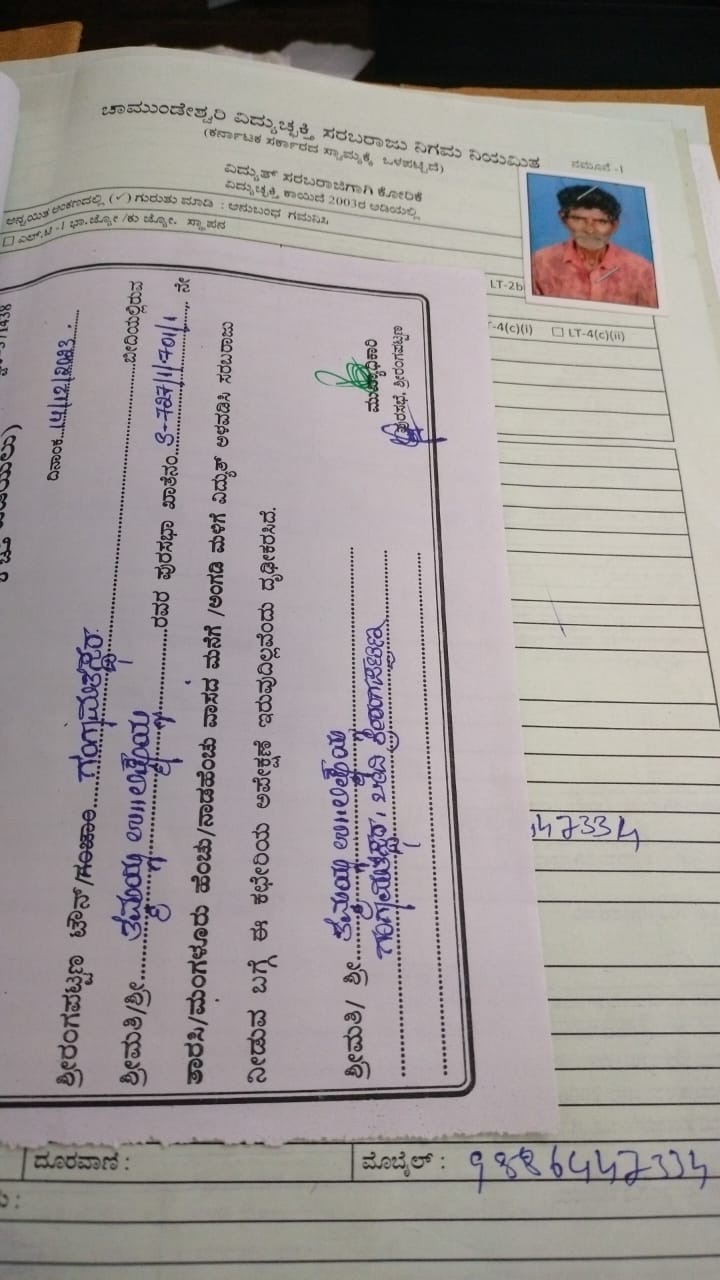 ಚಾಮುಂಡೇಶ್ವರಿ ವಿದ್ಯುಚ್ಛಕ್ತಿ ಸರಬರಾಜು ನಿಗಮ ನಿಯಮಿತ
(ಕರ್ನಾಟಕ ಸರ್ಕಾರದ ಸ್ವಾಮ್ಯಕ್ಕೆ ಒಳಪಟ್ಟಿದೆ)
ನಮೂನೆ -1
ವಿದ್ಯುತ್ ಸರಬರಾಜಿಗಾಗಿ ಕೋರಿಕೆ
ವಿದ್ಯುಚ್ಛಕ್ತಿ ಕಾಯಿದೆ 2003ರ ಅಡಿಯಲ್ಲಿ
ಅನ್ವಯಿತ ಅಂಕಣದಲ್ಲಿ (✓) ಗುರುತು ಮಾಡಿ : ಅನುಬಂಧ ಗಮನಿಸಿ
☐ ಎಲ್.ಟಿ -1 ಭಾ.ಜ್ಯೋ /ಕು ಜ್ಯೋ. ಸ್ಥಾಪನ
LT-2b
-4(c)(i) ☐ LT-4(c)(ii)
ದಿನಾಂಕ...14/12/2023.
ಶ್ರೀರಂಗಪಟ್ಟಣ ಟೌನ್/ಗಂಜಾಂ...ಗಂಗ್ರಾಮಚಕ್ಷರ...ಬೀದಿಯಲ್ಲಿರುವ
ಶ್ರೀಮತಿ/ಶ್ರೀ...ತಮ್ಮಯ್ಯ ಉ||...ರವರ ಪುರಸಭಾ ಖಾತೆನಂ...3-727/1/701/1...ನೇ
ತಾರಸಿ/ಮಂಗಳೂರು ಹೆಂಚು/ನಾಡಹೆಂಚು ವಾಸದ ಮನೆಗೆ /ಅಂಗಡಿ ಮಳಿಗೆ ವಿದ್ಯುತ್ ಅಳವಡಿಸಿ ಸರಬರಾಜು
ನೀಡುವ ಬಗ್ಗೆ ಈ ಕಛೇರಿಯ ಅಪೇಕ್ಷಣೆ ಇರುವುದಿಲ್ಲವೆಂದು ದೃಢೀಕರಿಸಿದೆ.
ಮುಖ್ಯಾಧಿಕಾರಿ
ಪುರಸಭೆ, ಶ್ರೀರಂಗಪಟ್ಟಣ
ಶ್ರೀಮತಿ/ ಶ್ರೀ...ತಮ್ಮಯ್ಯ ಉ||
ಬೀದಿ ಶ್ರೀರಂಗಪಟ್ಟಣ
47334
ದೂರವಾಣಿ :
ಮೊಬೈಲ್ : 9886447334